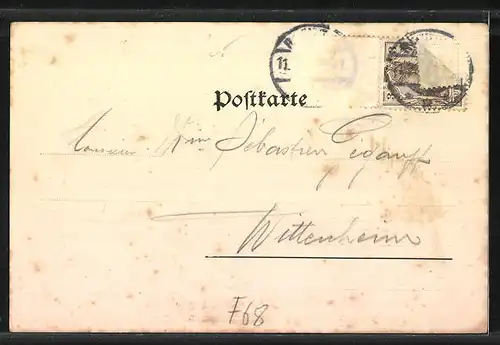 11.
Postkarte
Monsieur Sébastien Gigant
Wittenheim
F68